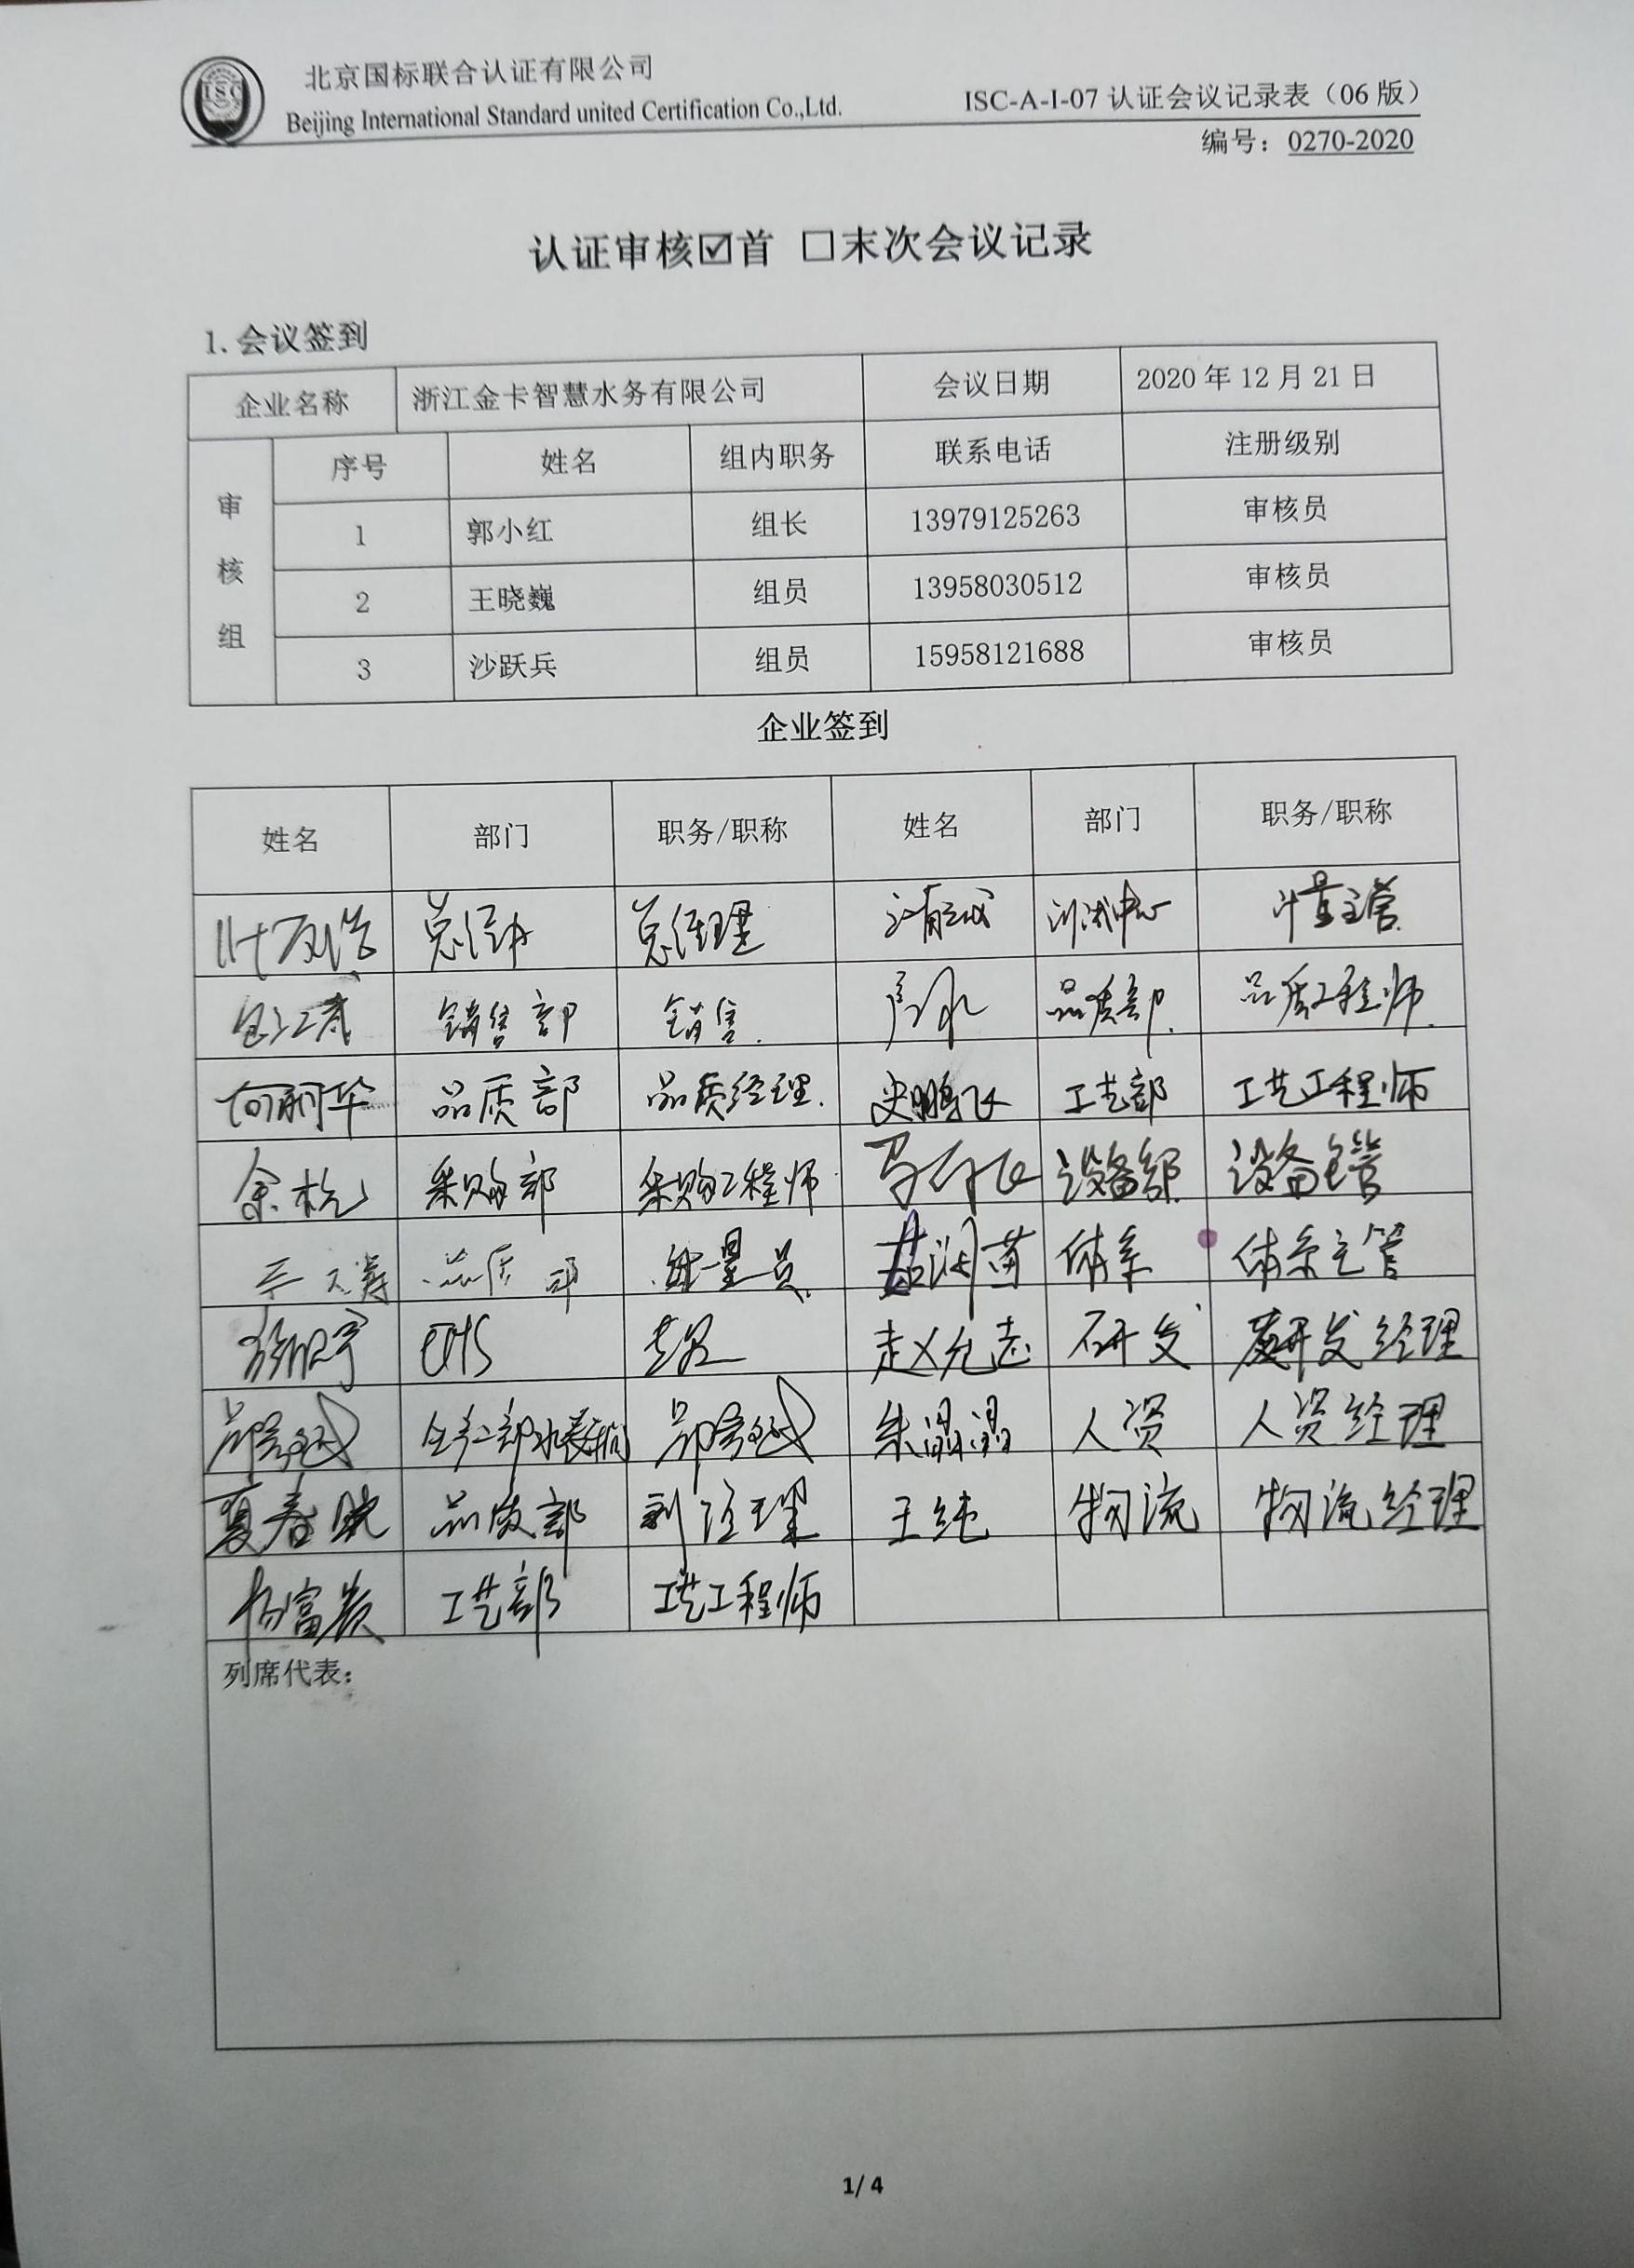 ISC
北京国标联合认证有限公司
Beijing International Standard united Certification Co.,Ltd.
ISC-A-I-07 认证会议记录表（06 版）
编号：0270-2020
认证审核☑首 □末次会议记录
1. 会议签到
企业名称 浙江金卡智慧水务有限公司 会议日期 2020 年 12 月 21 日
审核组
序号 姓名 组内职务 联系电话 注册级别
1 郭小红 组长 13979125263 审核员
2 王晓巍 组员 13958030512 审核员
3 沙跃兵 组员 15958121688 审核员
企业签到
姓名 部门 职务/职称 姓名 部门 职务/职称
总经办 总经理 测试中心 计量主管
销售部 销售 品质部 品质工程师
品质部 品质经理 史鹏飞 工艺部 工艺工程师
余杭 采购部 采购工程师 设备部 设备主管
品质部 体系 体系主管
EHS 赵义允志 研发 研发经理
朱晶晶 人资 人资经理
夏春晓 品质部 副经理 王纯 物流 物流经理
杨富贵 工艺部 工艺工程师
列席代表：
1/ 4